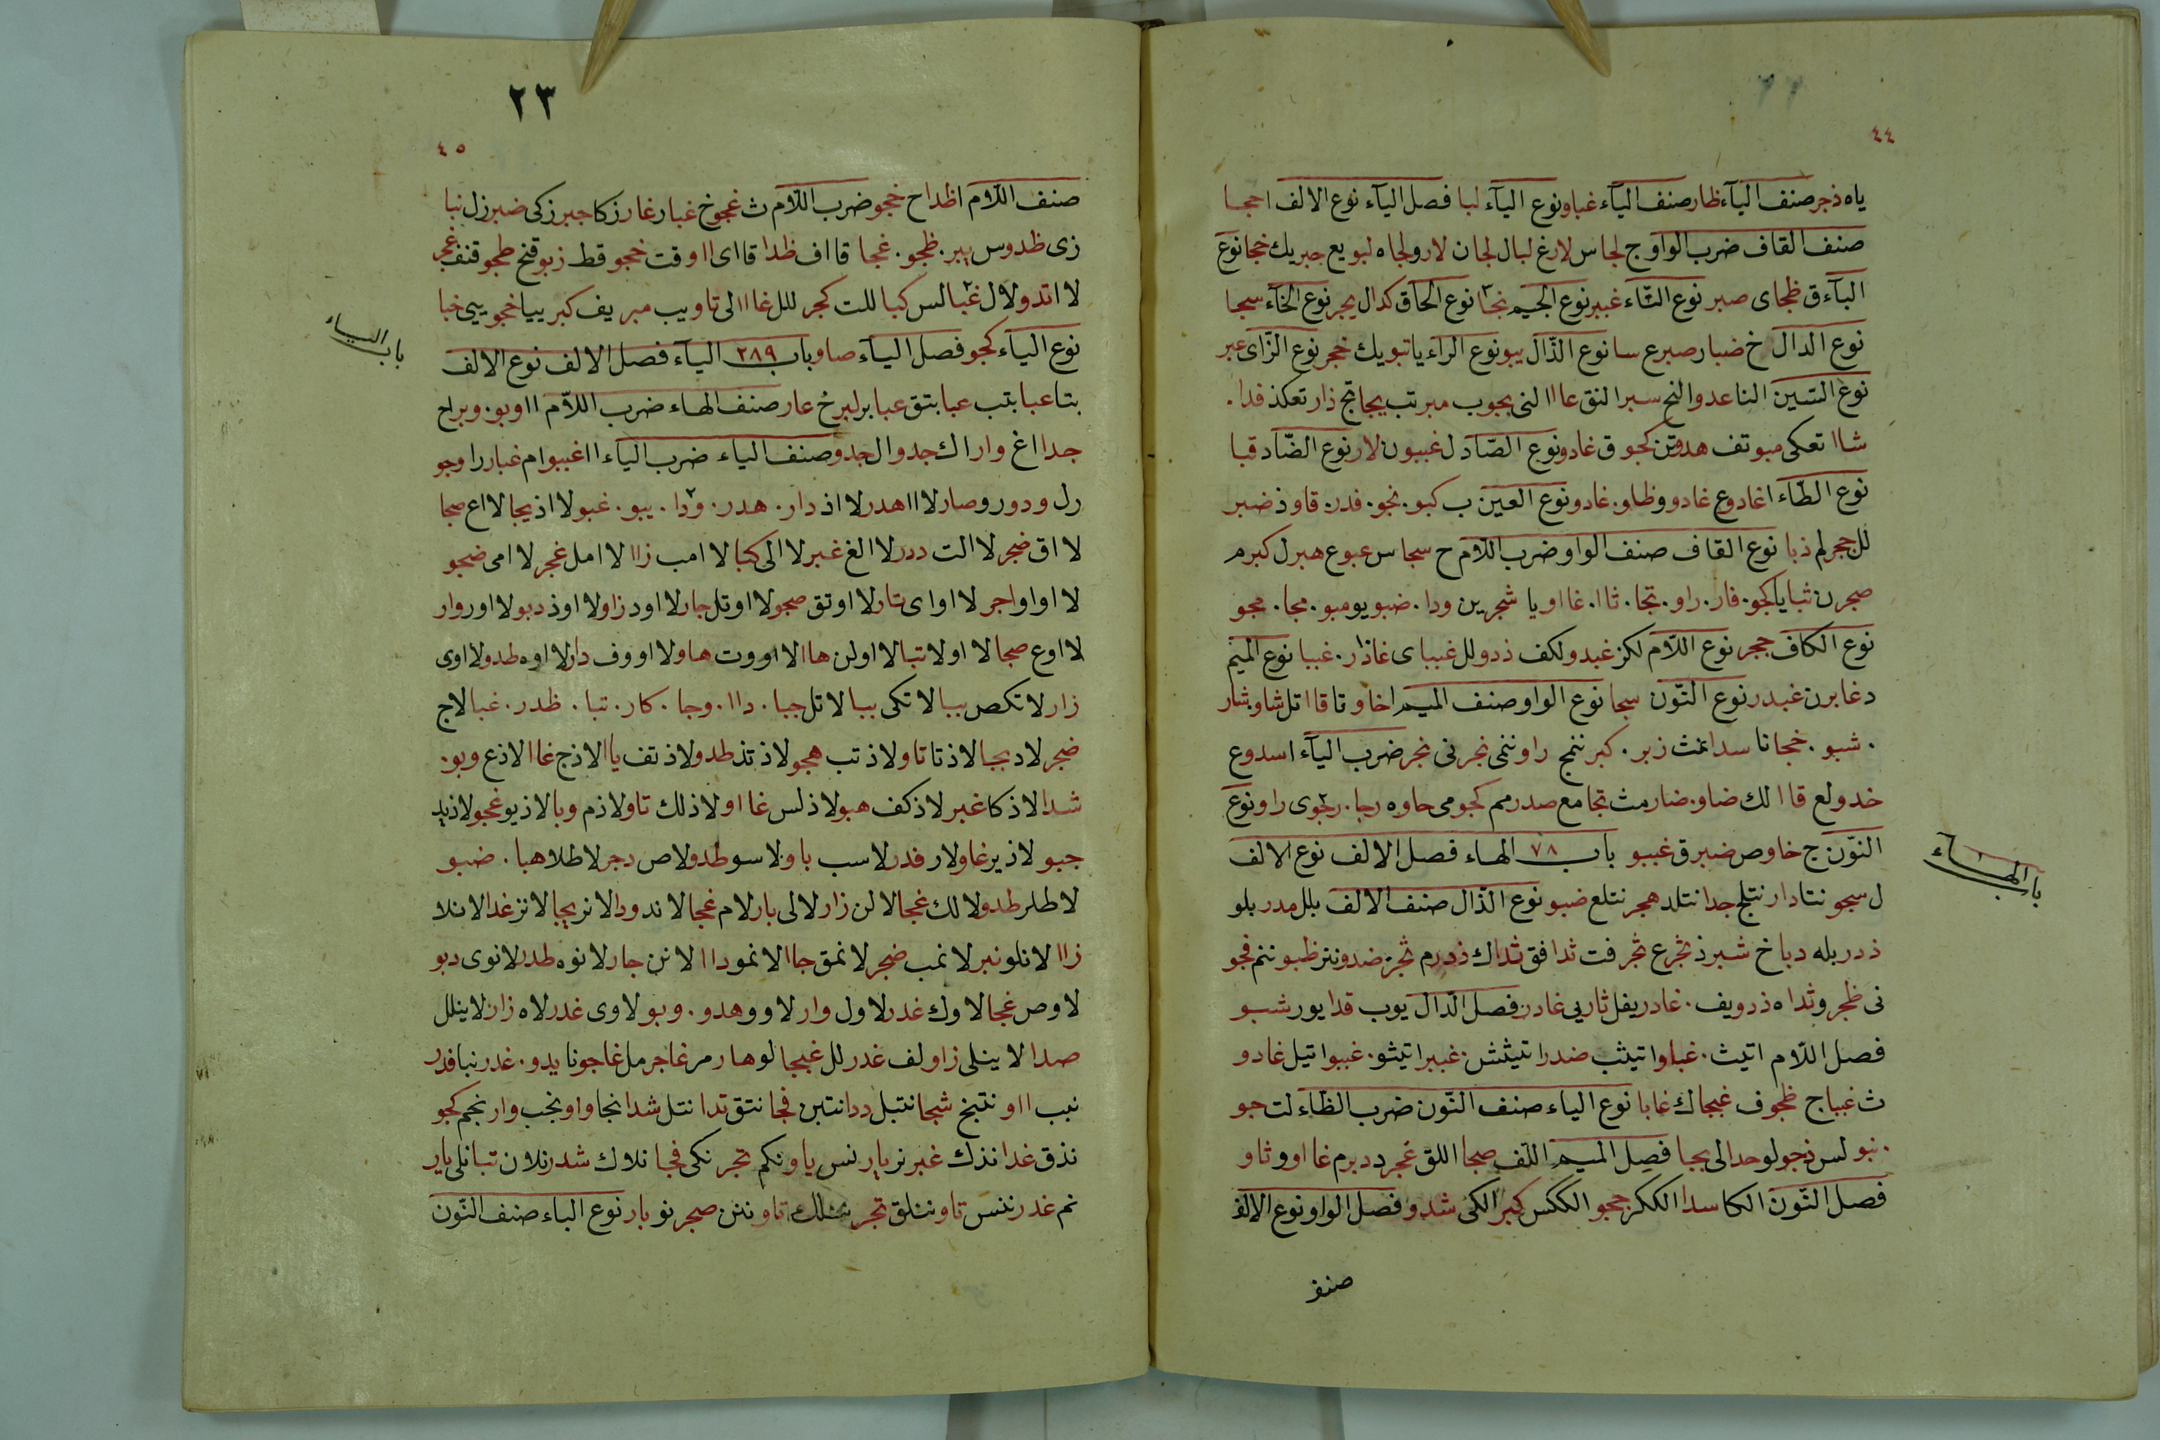 ٤٤
ياه ذجر صنف اليآء ظار صنف اليآء غباو نوع اليآء لبا فصل اليآء نوع الالف احجا
صنف القاف ضرب الواو ج لجا س لارغ لبال لجان لارو لجاه لبويع جبريك خجا نوع
البآء ق ظجاى صبر نوع الثآء غبير نوع الجيم نجا نوع الحاق كدال يجر نوع الخآء سجا
نوع الدال خ ضبار صبرع سا نوع الذّال يبو نوع الرآء يا تبويك خجر نوع الزّاى عبر
نوع السّين النا عدو النج سبر النق عاا لنى يجوب مبر تب يجا تج ذار تعكذ فدا.
شاا تعكى مبو تف هدو قن كجو ق غادو نوع الصّاد ل غببو ن لار نوع الضّاد قبا
نوع الطّاء ا غادو ع غادو وظاو. غادو نوع العين ب كبو. نجو. فدر. قاو ذ ضبر
لل ججر لم ذبا نوع القاف صنف الواو ضرب اللآم ح سجا س عبوع هبرل كبرم
صجرن ثبا يا كجو. فار. راو. تجا. ثاا. غااو يا شجر ين ودا. ضبو يو مبو. مجا. مجو
نوع الكاف ججر نوع اللآم لكز غبدو لكف ذدو لل غببا ى غاذر. غببا نوع الميم
د غابرن غبدر نوع النّون سجا نوع الواو صنف الميم اخاو تا قاا تل شاو شار
. شبو. خجا نا سدا نمث زبر. كبر ننج راو ننى نجر نى نجر ضرب اليآء اسدوع
خدو لع قاا لك ضاو. ضار مث تجا مع صدر مم كجو مى حاو ه رجا. رجوى راو نوع
النّون ج خاو ص ضبرق غببو باب ٧٨ الهاء فصل الالف نوع الالف
باب الهاء
ل سجو نتا دار نتلج جدا نتلد هجر نتلع ضبو نوع الذّال صنف الالف بلل مدر بلو
ذدر بله دباخ شبرذ ثجرع ثجر فت ثدا فق ثداك ذدرم ثجز ضدو ننز ظبو ننم فجو
نى ظجر و ثدا ه ذدو يف. غادر يفل ثار يى غادر. فصل الدّال يوب قدا يور شبو
فصل اللآم اتيث. غباو اتيثب ضدر اتيثش. غببر اتيثو. غببو اتيل غادو
ث غبباج ظجوف غبجاك غابا نوع الياء صنف النّون ضرب الظّاء لت جو
. نبو لس نجو لو حدا لى بجبا فصل الميم اللف صجا اللق غجر ددبرم غااو و ثاو
فصل النّون الكا سدا الككر ججو الككس كبر الكى شدو فصل الواو نوع الالف
صنف
٢٣
٤٥
صنف اللآم اظداح خجو ضرب اللآم ث غجوخ غبار غار زكا جبر زكى ضبر زل نبا
زى ظدوس يبر. ظجو. غجا قااف ظدا قاى ااو قت خجو قط زبو قنح طجو قنف غجر
لا اتدو لال غبا لس كبا للت كجر للل غاا لى تاو يب مبر يف كبر ييا خجو يى خبا
نوع الياء كجو فصل اليآء صاو باب ٢٨٩ اليآء فصل الالف نوع الالف
باب الياء
بتا عبا بتب عبا بتق عبا برلبرخ عار صنف الهاء ضرب اللآم ااو بو. وبراح
جدا اغ واراك جدو ال جدو صنف الياء ضرب الياء ا اغببو ام غبار را وجو
رل ودو رو صار لاا هدر لا اذ دار. هدر. ودا. يبو. غبو لا اذ يجا لا اع صجا
لا اق ضجر لا الت ددر لا الغ غبر لا الى كبا لا امب زاا لا امل غجر لا امى ضجو
لا اواو اجر لا اواى تار لا اوتق صجو لا اوتل جار لا اود زاو لا اوذ دبو لا اور وار
لا اوع صجا لا اولا تبا لا اولن هاا لا اووت هاو لا اووف دار لا اوه طدو لا اوى
زار لا تكص ببا لا تكى ببا لا تل جبا. داا. وجا. كار. تبا. ظدر. غبا لاج
ضجر لاد بجبا لاذتا تاو لاذ تب هجو لاذ تذ طدو لاذ تف ياا لاذج غاا لاذع وبو.
شدا لاذكا غبر لاذكف هبو لاذلس غااو لاذلك تاو لاذم وبا لاذيو غجو لاذيد
جبو لاذير غاو لار فدر لاسب باو لاسو طدو لاص دجر لاطلا هبا. ضبو
لاطلر طدو لالك غجا لالن زار لالى بار لام غجا لاند ودا لانر يجا لانز غدا لانلا
زاا لانلو نبر لانمب ضجر لانمق جاا لانمو داا لانن جار لانوه طدر لانوى دبو
لاوص غجا لاوك غدر لاول وار لاوو هدو. وبو لاوى غدر لاه زار لاينلل
صدا لاينلى زاو لف غدر لل غبجا لو هار مر غاجر مل غاجو نا يدو. غدر نبا فدر
نبب ااو نتبخ شجا نتبل ددا نتبن فجا نتق تدا نتل شدا نجا واو نجب وار نجم كجو
نذق غدا نذك غبر نر يار نس ياو نكم تجر نكى فجا نلاك شدر نلان تبا نلى يار
نم غدر ننس تاو ننلق تجر ننلك تاو ننن صجر نو بار نوع الباء صنف النّون